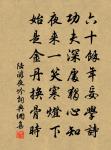 六十餘年妄學詩
功夫深處獨心知
夜來一笑寒燈下
始是金丹換骨時
陸游夜吟詞典網集